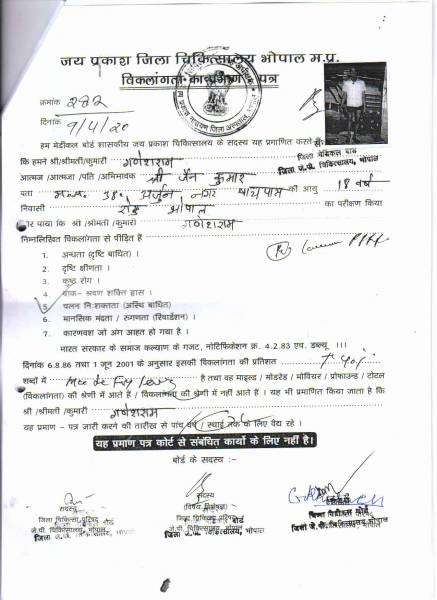 जय प्रकाश जिला चिकित्सालय भोपाल म.प्र.
विकलांगता का प्रमाण पत्र
क्रमांक 282
दिनांक 9/4/20
हम मेडीकल बोर्ड शासकीय जय प्रकाश चिकित्सालय के सदस्य यह प्रमाणित करते हैं
जिला मेडिकल बोर्ड
जिला जे.पी. चिकित्सालय, भोपाल
कि हमने श्री/श्रीमती/कुमारी गणेशराम
आत्मज /आत्मजा /पति /अभिभावक श्री जैन कुमार
पता म.न. 38. अर्जुन नगर बायपास की आयु 18 वर्ष
निवासी रोड भोपाल का परीक्षण किया
और पाया कि श्री /श्रीमती /कुमारी गणेशराम
निम्नलिखित विकलांगता से पीड़ित हैं
1. अन्धता (दृष्टि बाधित) ।
2. दृष्टि क्षीणता ।
3. कुष्ठ रोग ।
4. वाक- श्रवण शक्ति ह्रास ।
5. चलन निःशक्तता (अस्थि बाधित)
6. मानसिक मंदता / रुगणता (रिचार्डेशन) ।
7. कारणवश जो अंग आहत हो गया है ।
भारत सरकार के समाज कल्याण के गजट, नोटिफिकेशन क्र. 4.2.83 एच. डब्ल्यू !!!
दिनांक 6.8.86 तथा 1 जून 2001 के अनुसार इसकी विकलांगता की प्रतिशत
शब्दों में है तथा वह माइल्ड / मोडरेड / मोवियर / प्रोफाउन्ड / टोटल
(विकलांगता) की श्रेणी में आते हैं / विकलांगता की श्रेणी में नहीं आते हैं । यह भी प्रमाणित किया जाता है कि
श्री /श्रीमती/ कुमारी गणेशराम
यह प्रमाण – पत्र जारी करने की तारीख से पांच वर्ष / स्थाई तक के लिए वैद्य रहे ।
यह प्रमाण पत्र कोर्ट से संबंधित कार्यो के लिए नहीं है।
बोर्ड के सदस्य :–
सदस्य सदस्य
(विषय विशेषज्ञ)
जिला चिकित्सा परिषद् जिला चिकित्सा परिषद्
जे.पी. चिकित्सालय, भोपाल जे.पी. चिकित्सालय, भोपाल जिला जे.पी. चिकित्सालय, भोपाल